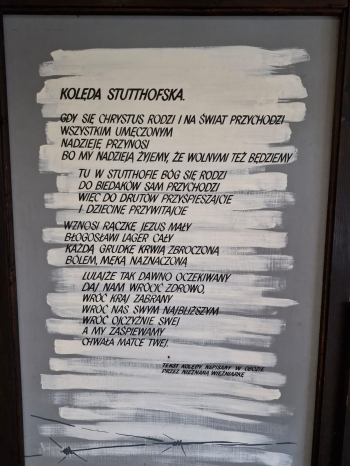 KOLĘDA STUTTHOFSKA.
GDY SIĘ CHRYSTUS RODZI I NA ŚWIAT PRZYCHODZI
WSZYSTKIM UMĘCZONYM
NADZIEJĘ PRZYNOSI
BO MY NADZIEJĄ ŻYJEMY, ŻE WOLNYMI TEŻ BĘDZIEMY
TU W STUTTHOFIE BÓG SIĘ RODZI
DO BIEDAKÓW SAM PRZYCHODZI
WIĘC DO DRUTÓW PRZYSPIESZAJCIE
I DZIECINĘ PRZYWITAJCIE
WZNOSI RĄCZKĘ JEZUS MAŁY
BŁOGOSŁAWI LAGER CAŁY
KAŻDĄ GRUDKĘ KRWIĄ ZBROCZONĄ
BÓLEM, MĘKĄ NAZNACZONĄ
LULAJŻE TAK DAWNO OCZEKIWANY
DAJ NAM WRÓCIĆ ZDROWO,
WRÓĆ KRAJ ZABRANY
WRÓĆ NAS SWYM NAJBLIŻSZYM
WRÓĆ OJCZYŹNIE SWEJ
A MY ZAŚPIEWAMY
CHWAŁA MATCE TWEJ.
TEKST KOLĘDY NAPISANY W OBOZIE
PRZEZ NIEZNANĄ WIĘŹNIARKĘ